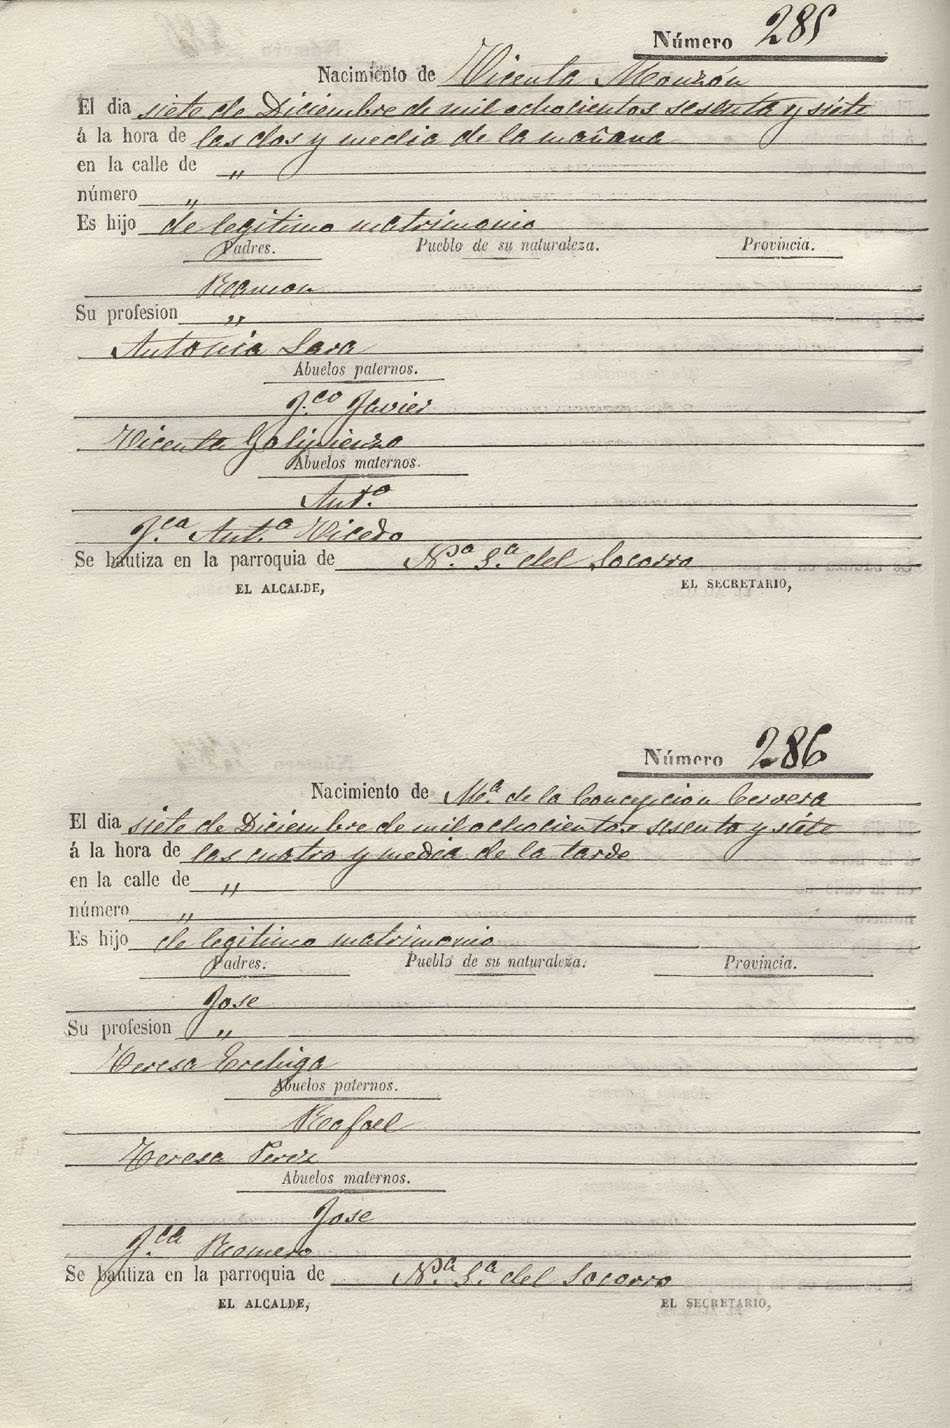 Número 285
Nacimiento de Vicenta Monzón
El dia siete de Diciembre de mil ochocientos sesenta y siete
á la hora de las dos y media de la mañana
en la calle de "
número "
Es hijo de legitimo matrimonio
Padres. Pueblo de su naturaleza. Provincia.
Ramon
Su profesion "
Antonia Sara
Abuelos paternos.
Fco Javier
Vicenta Galipienzo
Abuelos maternos.
Anto
Fca Anta Vicedo
Se bautiza en la parroquia de Na Sa del Socorro
EL ALCALDE, EL SECRETARIO,
Número 286
Nacimiento de Ma de la Concepcion Cervera
El dia siete de Diciembre de mil ochocientos sesenta y siete
á la hora de las cuatro y media de la tarde
en la calle de "
número "
Es hijo de legitimo matrimonio
Padres. Pueblo de su naturaleza. Provincia.
Jose
Su profesion "
Teresa
Abuelos paternos.
Rafael
Teresa Perez
Abuelos maternos.
Jose
Fca Romero
Se bautiza en la parroquia de Na Sa del Socorro
EL ALCALDE, EL SECRETARIO,